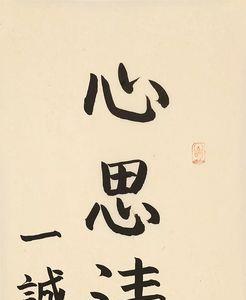 心思清
一誠